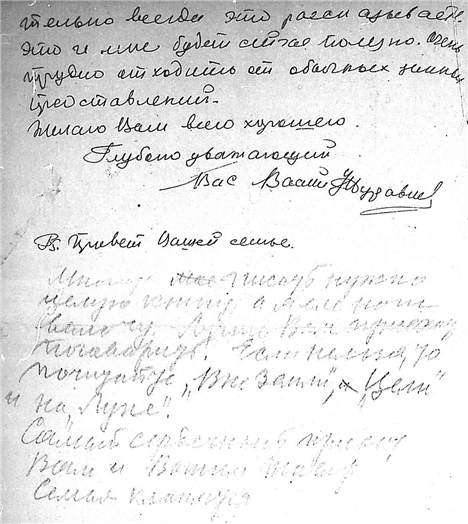 тельно всегда это рассказываете
Это и мне будет сейчас полезно. Очень
трудно отходить от обычных земных
представлений.
Желаю Вам всего хорошего.
Глубоко уважающий
Вас Васили Журавлев
P.S. Привет Вашей семье.
писать нужно
целую книгу, а я еле ноги
волочу. Вам приехать
поговорить. Если нельзя, то
почитайте „Вне Земли“, и „Цели“
и на Луне“.
Самый сердечный привет
Вам и Вашим
Семья кланяется